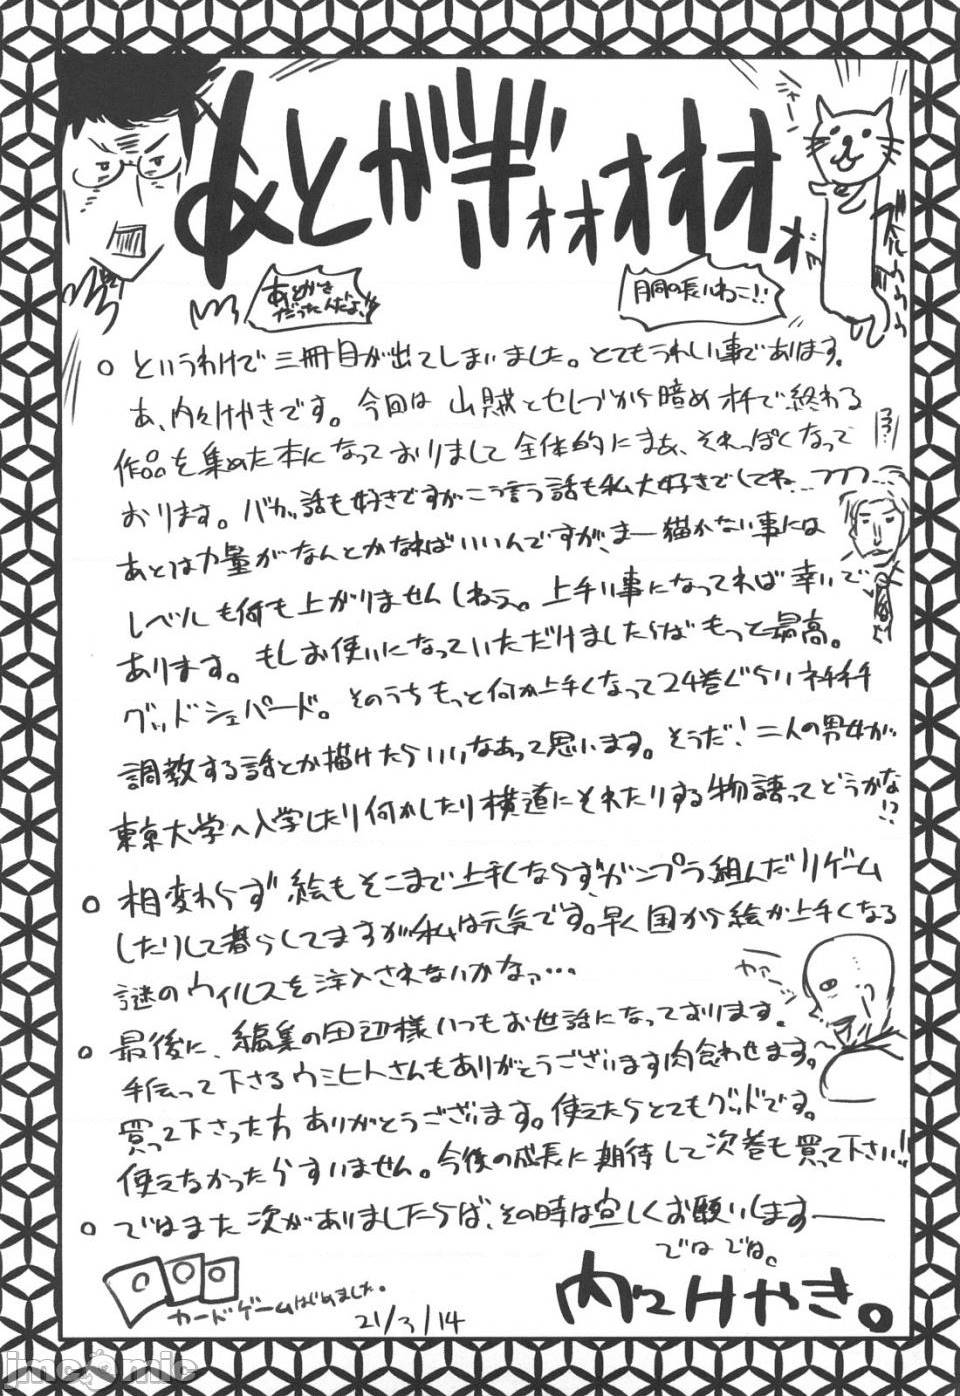 あとがきォォオオオォ
あとがき
だったんだよ!!
胴の長いねこ!!
というわけで三冊目が出てしまいました。とてもうれしい事であります。
あ、内々けやきです。今回は山賊とセレブから暗めオチで終わる
作品を集めた本になっておりまして全体的にまあ、それっぽくなって
おります。バカ話も好きですがこう言う話も私大好きでしてね…
あとは力量がなんとかなればいいんですが、まー描かない事には
レベルも何も上がりませんしねぇ。上手い事になってれば幸いで
あります。もしお使いになっていただけましたらばもっと最高。
グッドシェパード。そのうちもっと何か上手くなって24巻ぐらいネチネチ
調教する話とか描けたらいいなあって思います。そうだ!二人の男女が
東京大学へ入学したり何かしたり横道にそれたりする物語ってどうかな!?
相変わらず絵もそこまで上手くならず、ガンプラ組んだりゲーム
したりして暮らしてますが私は元気です。早く国から絵が上手くなる
謎のウイルスを注入されないかなァ…
最後に、編集の田辺様いつもお世話になっております。
手伝って下さるウミヒトさんもありがとうございます肉食わせます。
買って下さった方ありがとうございます。使えたらとてもグッドです。
使えなかったらすいません。今後の成長に期待して次巻も買って下さい!!
ではまた次がありましたらば、その時は宜しくお願いします――
ではでは。
カードゲームはじめました。
21/3/14
内々けやき。
jmcomic